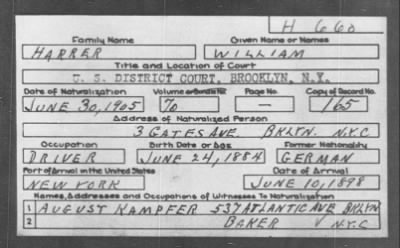 H 660
Family Name Given Name or Names
HARRER WILLIAM
Title and Location of Court
U. S. DISTRICT COURT, BROOKLYN, N.Y.
Date of Naturalization Volume or Bundle No. Page No. Copy of Record No.
JUNE 30, 1905 70 — 165
Address of Naturalized Person
3 GATES AVE. BKLYN. N.Y.C
Occupation Birth Date or Age Former Nationality
DRIVER JUNE 24, 1884 GERMAN
Port of Arrival in the United States Date of Arrival
NEW YORK JUNE 10, 1898
Names, Addresses and Occupations of Witnesses To Naturalization
1 AUGUST KAMPFER 537 ATLANTIC AVE BKLYN
2 BAKER N.Y.C